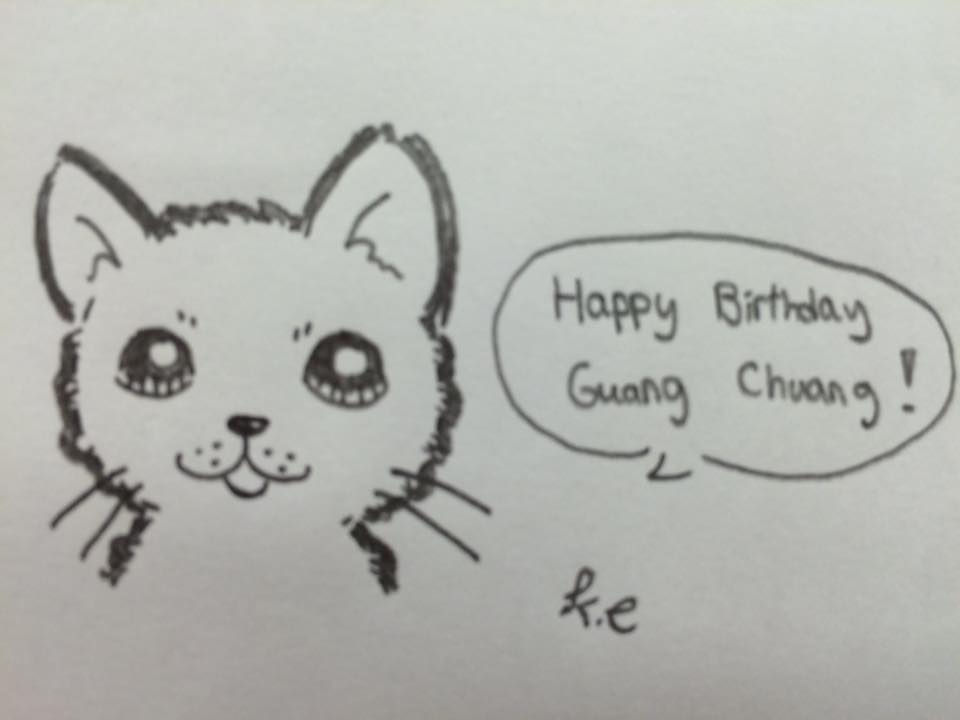 Happy Birthday
Guang Chuang!
k.e